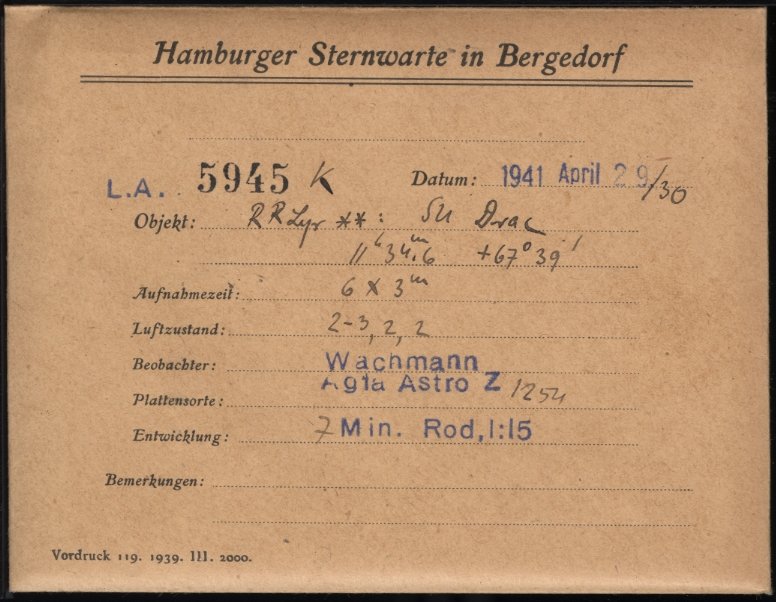 Hamburger Sternwarte in Bergedorf
L.A. 5945 K Datum: 1941 April 29/30
Objekt: RR Lyr **: SU Drac
11h 34.m6 +67° 39'
Aufnahmezeit: 6 x 3m
Luftzustand: 2-3, 2, 2
Beobachter: Wachmann
Plattensorte: Agfa Astro Z 1254
Entwicklung: 7 Min. Rod, 1:15
Bemerkungen:
Vordruck 119. 1939. III. 2000.